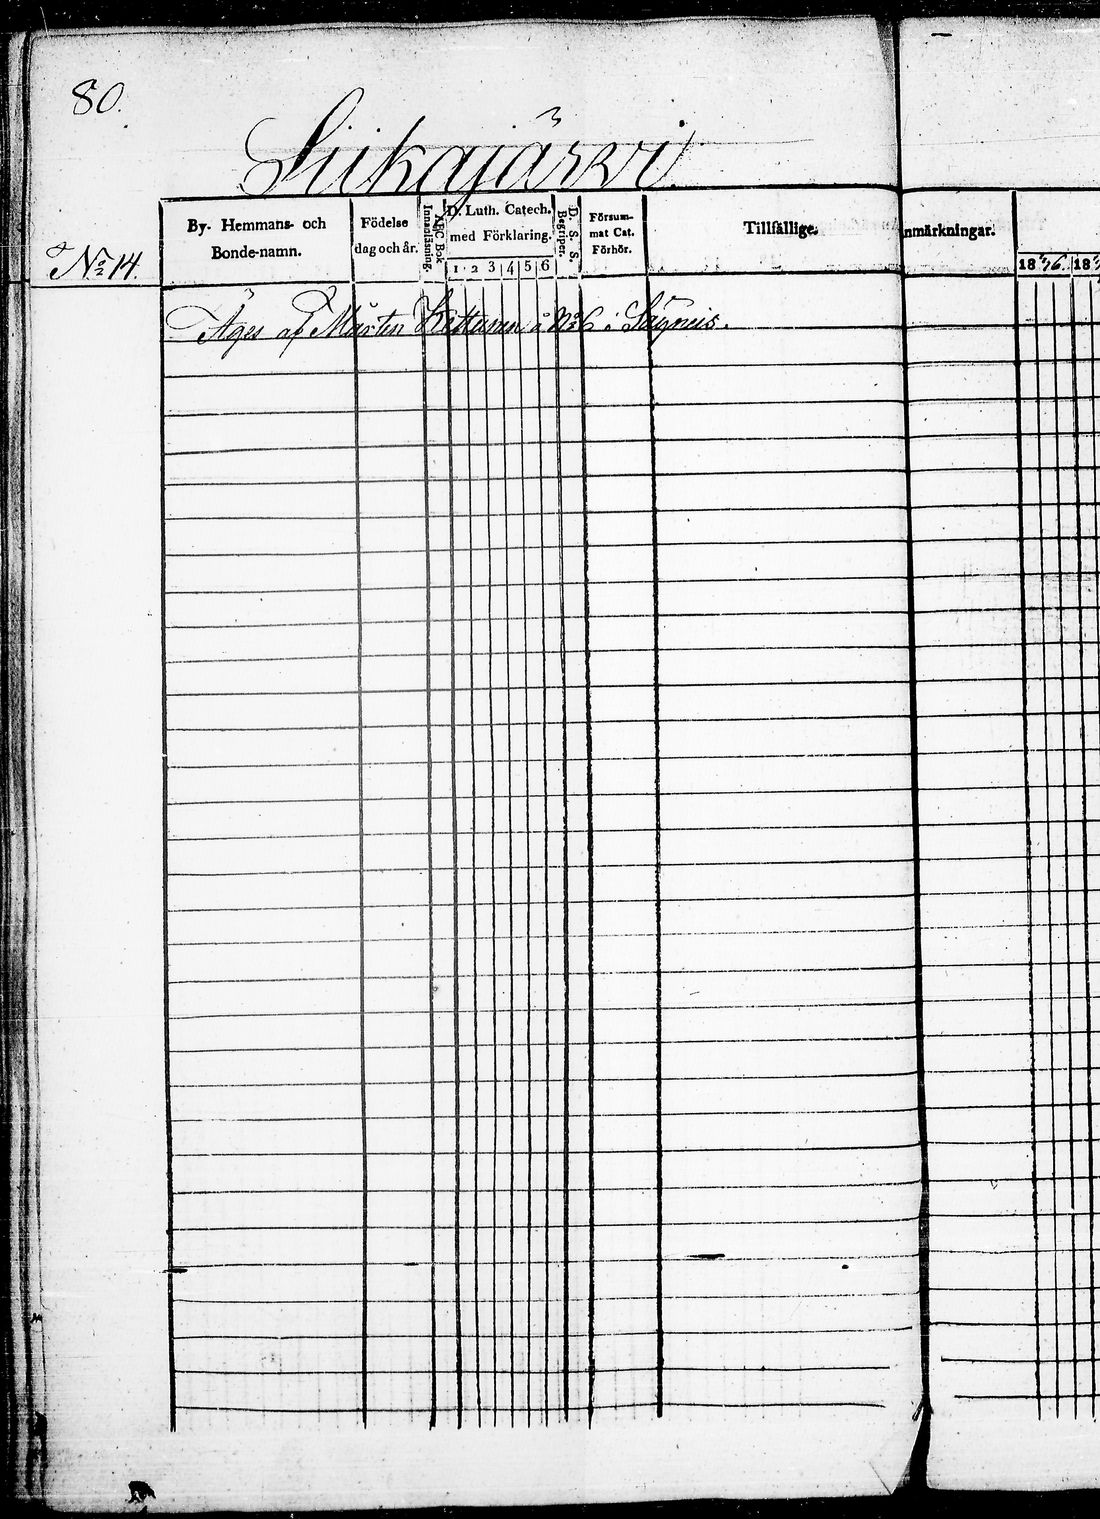 80.
Siikajärvi.
By- Hemmans- och Bonde-namn.
Födelse dag och år.
ABC Bok Innanläsning.
D. Luth. Catech. med Förklaring.
1 2 3 4 5 6
D. S. S. Begriper.
Försummat Cat. Förhör.
Tillfällige
nmärkningar.
18 18
No 14.
Äges af Mårten Kettunen å No 6 i